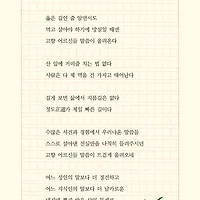 옳은 길인 줄 알면서도
먹고 살아야 하기에 망설일 때면
고향 어르신들 말씀이 울려온다
산 입에 거미줄 치는 법 없다
사람은 다 제 먹을 건 가지고 태어난다
길게 보면 삶에서 지름길은 없다
정도正道가 제일 빠른 길이다
수많은 시련과 경험에서 우러나온 말씀들
스스로 살아낸 진실만을 나직히 들려주시던
고향 어르신들 말씀이 뜨겁게 울려오네
어느 성인의 말보다 더 정건하고
어느 지식인의 말보다 더 날카로운